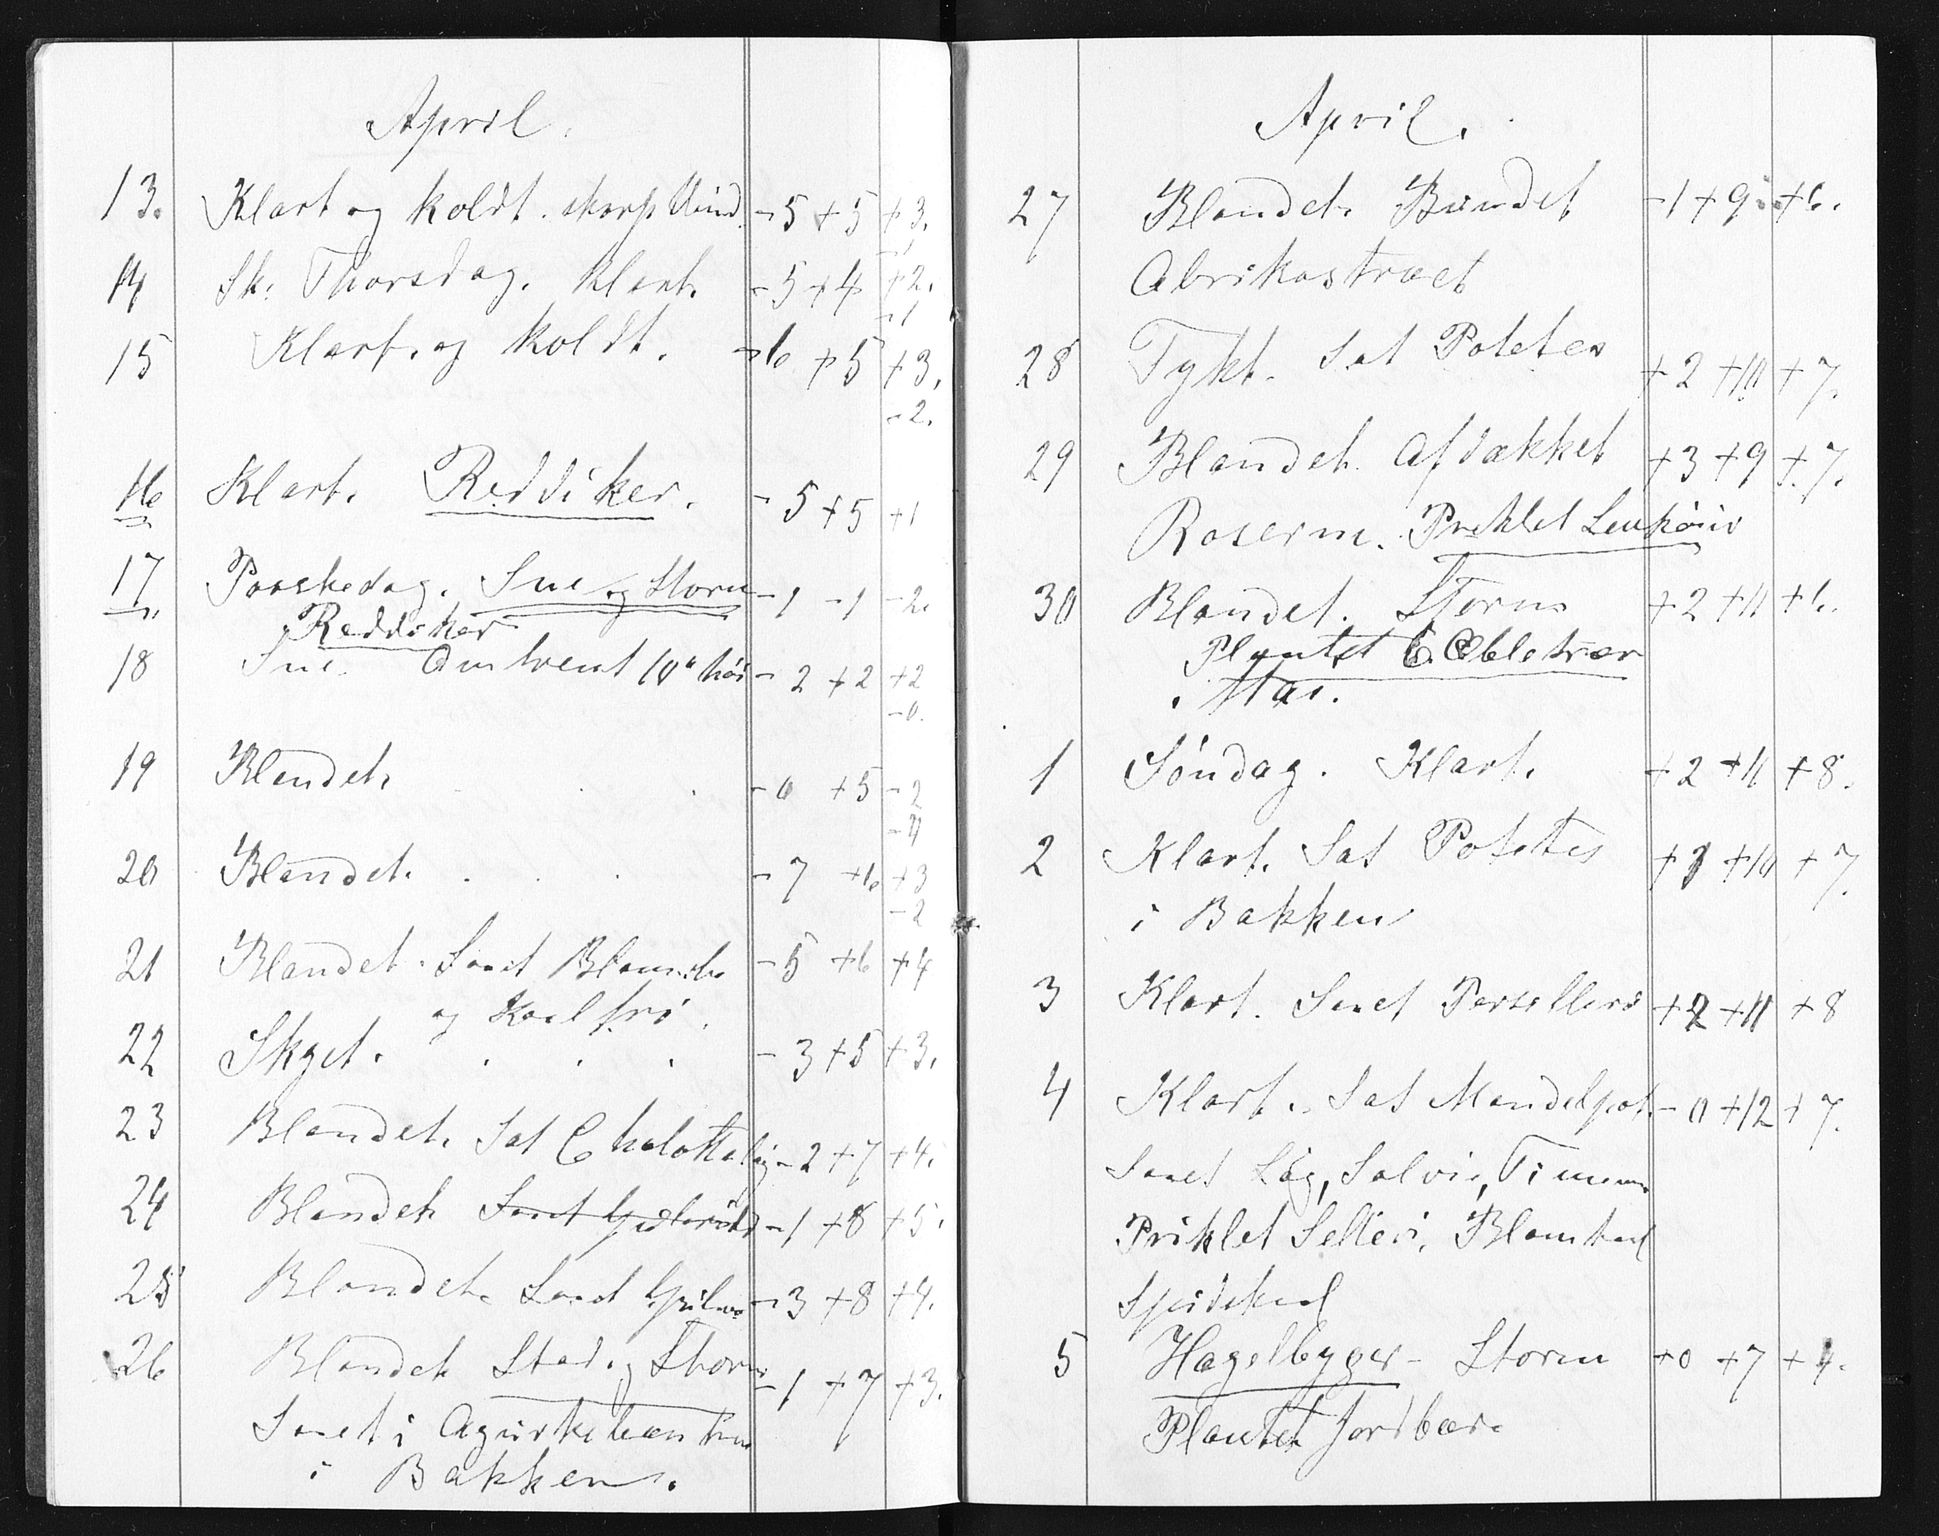 April.
13. Klart og koldt. skarp Vind -5 +5 +3.
14 Sk: Thorsdag. Klart. -5 +4 +2.
-1
15 Klart og koldt. -6 +5 +3.
-2.
16 Klart. Reddiker. -5 +5 +1
17 Paaskedag. Sne og Storm -1 -1 -2.
Reddiker
18 Sne. Omtrent 10" høi -2 +2 +2
-0.
19 Blandet. -6 +5 -2
20 Blandet. . . . -7 +6 +3
-2
21 Blandet. Saaet Blomster -5 +6 +4
og Kaalfrø.
22 Skyet. . . . -3 +5 +3.
23 Blandet. Sat Chalotteløg -2 +7 +4.
24 Blandet. Saaet -1 +8 +5.
25 Blandet. Saaet -3 +8 +4.
26 Blandet. Stær og Storm -1 +7 +3.
Saaet i Agurkebænken
i Bakken.
April.
27 Blandet. Bundet -1 +9 +6.
Abrikostræet
28 Tykt. Sat Potetes +2 +10 +7.
29 Blandet. Afdækket +3 +9 +7.
Roserne. Priklet Levkøier
30 Blandet. Storm +2 +11 +6.
Plantet 6. Æbletrær
1 Søndag. Klart. +2 +11 +8.
2 Klart. Sat Potetes +1 +10 +7.
i Bakken
3 Klart. Saaet Persillerod +2 +11 +8
4 Klart. Sat Mandelpot. -0 +12 +7.
Saaet Løg, Salvie, Timian
Priklet Selleri, Blomkaal
Spidskaal
5 Hagelbyger - Storm +0 +7 +4.
Plantet Jordbær.